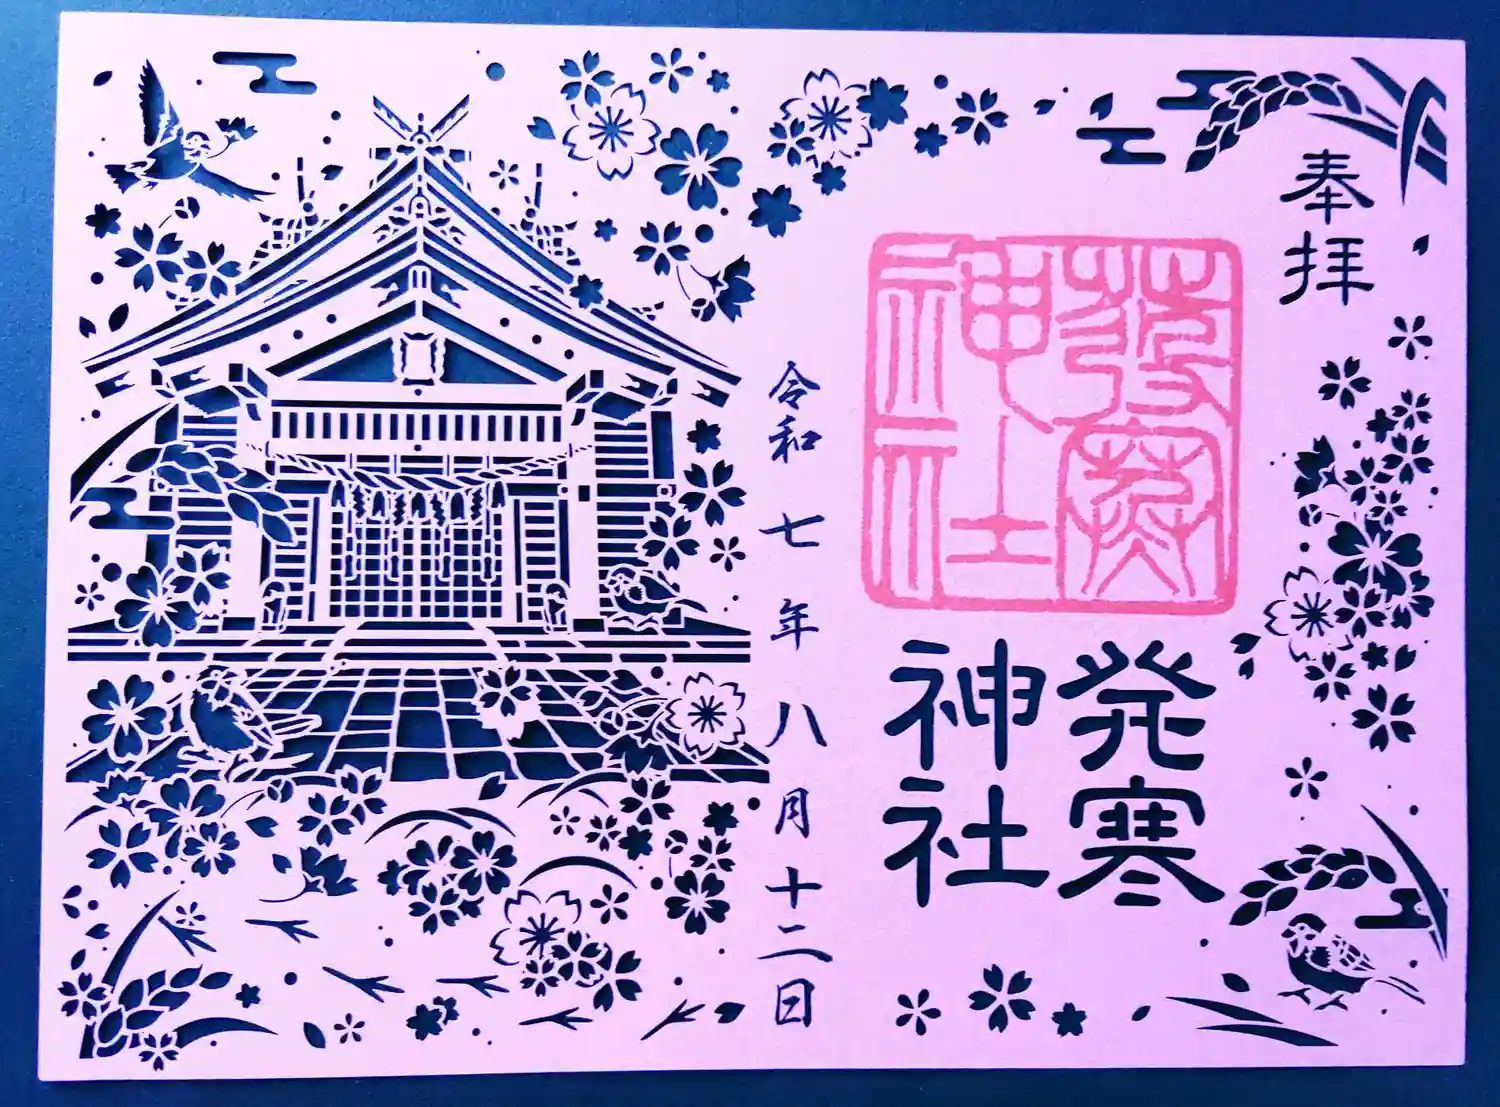 奉拝
発寒
神社
発寒
神社
令和七年八月十二日